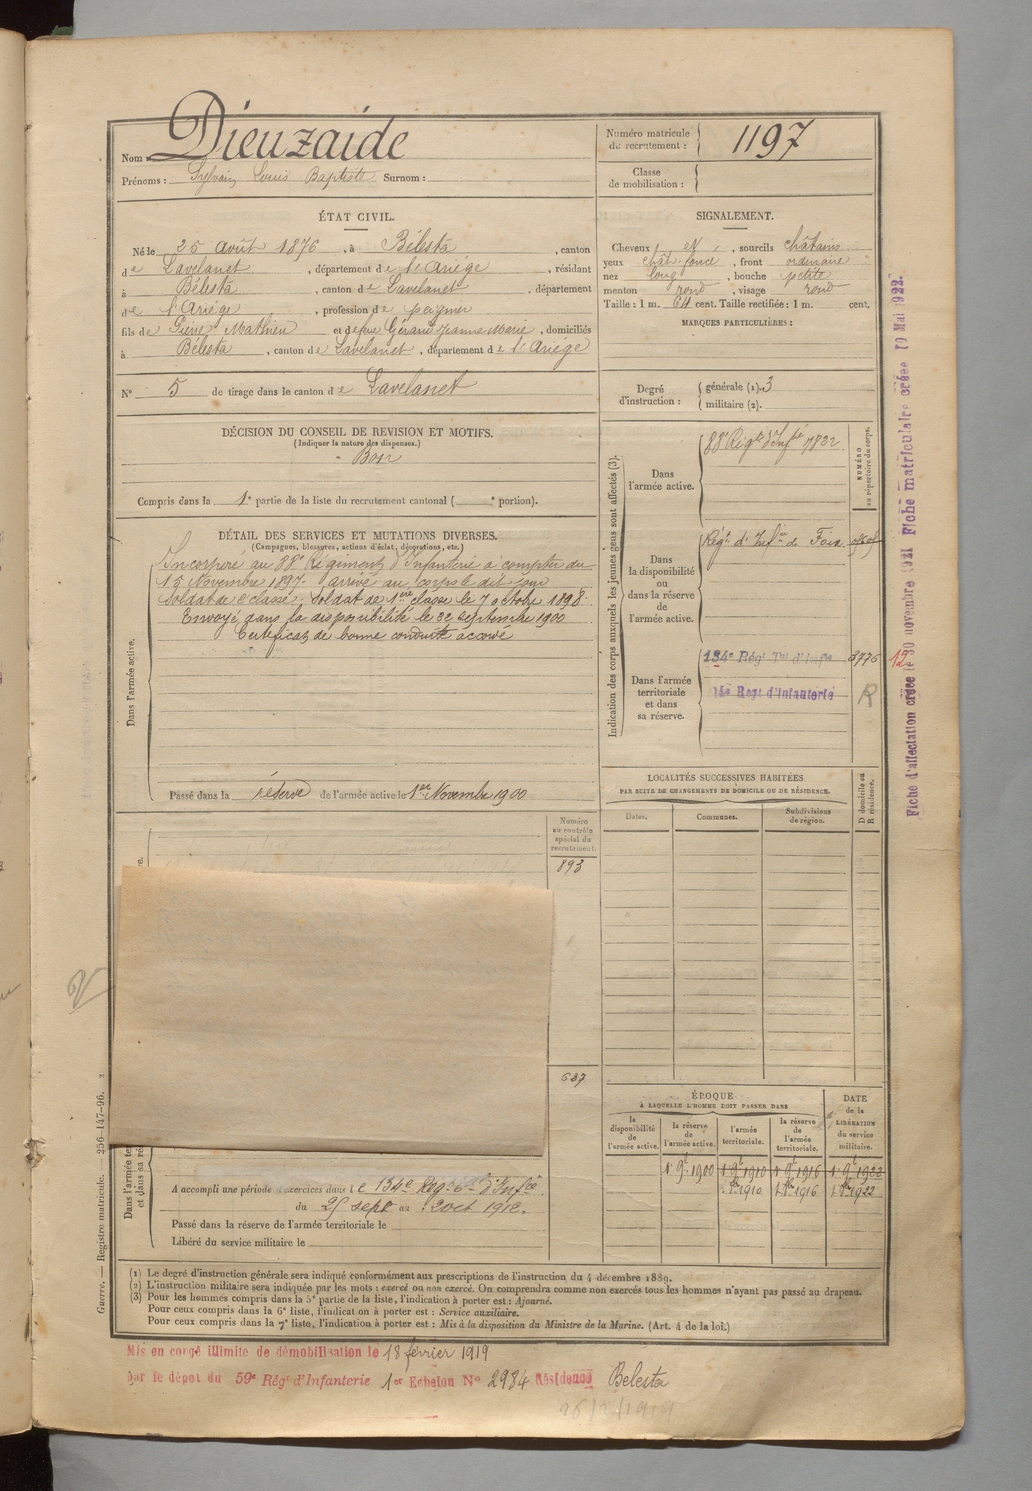 Nom : Dieuzaide
Prénoms : Sylvain Louis Baptiste Surnom :
Numéro matricule
de recrutement : 1197
Classe
de mobilisation :
ÉTAT CIVIL.
Né le 25 août 1876, à Bélesta, canton
de Lavelanet, département de l'Ariége, résidant
à Bélesta, canton de Lavelanet, département
de l'Ariége, profession de peigneur
fils de Pierre Mathieu et de feue Gérard Jeanne Marie, domiciliés
à Bélesta, canton de Lavelanet, département de l'Ariége
N° 5 de tirage dans le canton de Lavelanet
SIGNALEMENT.
Cheveux et, sourcils châtains
yeux chât. foncé, front ordinaire
nez long, bouche petite
menton rond, visage rond
Taille : 1 m. 64 cent. Taille rectifiée : 1 m. cent.
MARQUES PARTICULIÈRES :
Degré
d'instruction :
générale (1). 3
militaire (2).
DÉCISION DU CONSEIL DE REVISION ET MOTIFS.
(Indiquer la nature des dispenses.)
Bon
Compris dans la 1e partie de la liste du recrutement cantonal ( e portion).
DÉTAIL DES SERVICES ET MUTATIONS DIVERSES.
(Campagnes, blessures, actions d'éclat, décorations, etc.)
Dans l'armée active.
Incorporé au 88e Régiment d'Infanterie à compter du
15 Novembre 1897. arrivé au corps le dit jour
Soldat de 2e classe. Soldat de 1ère classe le 7 octobre 1898.
Envoyé dans la disponibilité le 22 septembre 1900
Certificat de bonne conduite accordé
Passé dans la réserve de l'armée active le 1er Novembre 1900
Indication des corps auxquels les jeunes gens sont affectés (3).
NUMÉRO
au répertoire du corps.
Dans
l'armée active.
88e Régt d'Infie 7822
Dans
la disponibilité
ou
dans la réserve
de
l'armée active.
Régt d'Infie de Foix
Dans l'armée
territoriale
et dans
sa réserve.
134e Régt Tal d'Infie 3776 12
Régt d'Infanterie R
LOCALITÉS SUCCESSIVES HABITÉES
PAR SUITE DE CHANGEMENTS DE DOMICILE OU DE RÉSIDENCE.
Dates.
Communes.
Subdivisions
de région.
D domicile ou
R résidence.
Numéro
au contrôle
spécial du
recrutement.
893
637
ÉPOQUE
À LAQUELLE L'HOMME DOIT PASSER DANS
la
disponibilité
de
l'armée active.
la réserve
de
l'armée active.
l'armée
territoriale.
la réserve
de
l'armée
territoriale.
DATE
de la
LIBÉRATION
du service
militaire.
1er 9bre 1900 1er 9bre 1910 1er 9bre 1916 1er 9bre 1922
1910 1916 1922
A accompli une période d'exercices dans le 134e Régt d'Infie
du 25 sept au 2 oct 1912.
Passé dans la réserve de l'armée territoriale le
Libéré du service militaire le
(1) Le degré d'instruction générale sera indiqué conformément aux prescriptions de l'instruction du 4 décembre 1889.
(2) L'instruction militaire sera indiquée par les mots : exercé ou non exercé. On comprendra comme non exercés tous les hommes n'ayant pas passé au drapeau.
(3) Pour les hommes compris dans la 5e partie de la liste, l'indication à porter est : Ajourné.
Pour ceux compris dans la 6e liste, l'indication à porter est : Service auxiliaire.
Pour ceux compris dans la 7e liste, l'indication à porter est : Mis à la disposition du Ministre de la Marine. (Art. 4 de la loi.)
Mis en congé illimité de démobilisation le 18 février 1919
par le dépôt du 59e Régt d'Infanterie 1er Echelon N° 2984 Résidence Belesta
Guerre. — Registre matricule. — 256-147-96.
Fiche d'affectation créée le 30 novembre 1921 Fiche matriculaire créée 19 Mai 1922.